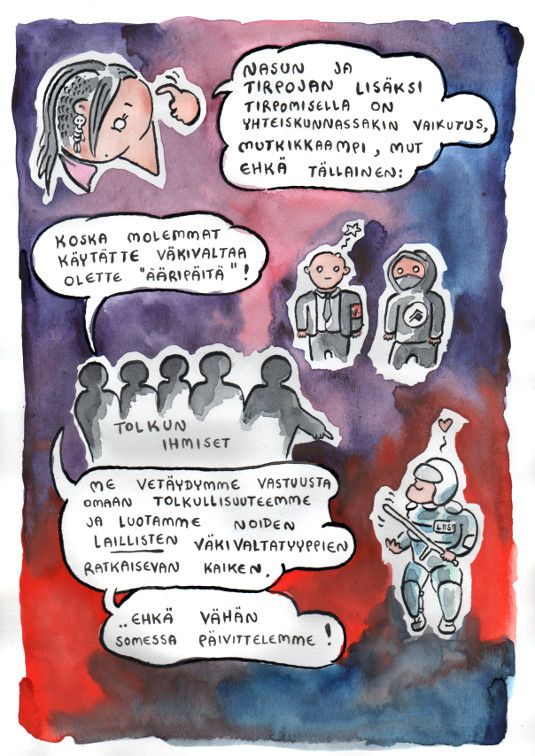 NASUN JA
TIRPOJAN LISÄKSI
TIRPOMISELLA ON
YHTEISKUNNASSAKIN VAIKUTUS,
MUTKIKKAAMPI, MUT
EHKÄ TÄLLAINEN:
KOSKA MOLEMMAT
KÄYTÄTTE VÄKIVALTAA
OLETTE "ÄÄRIPÄITÄ"!
TOLKUN
IHMISET
ME VETÄYDYMME VASTUUSTA
OMAAN TOLKULLISUUTEEMME
JA LUOTAMME NOIDEN
LAILLISTEN VÄKIVALTATYYPPIEN
RATKAISEVAN KAIKEN.
..EHKÄ VÄHÄN
SOMESSA PÄIVITTELEMME!